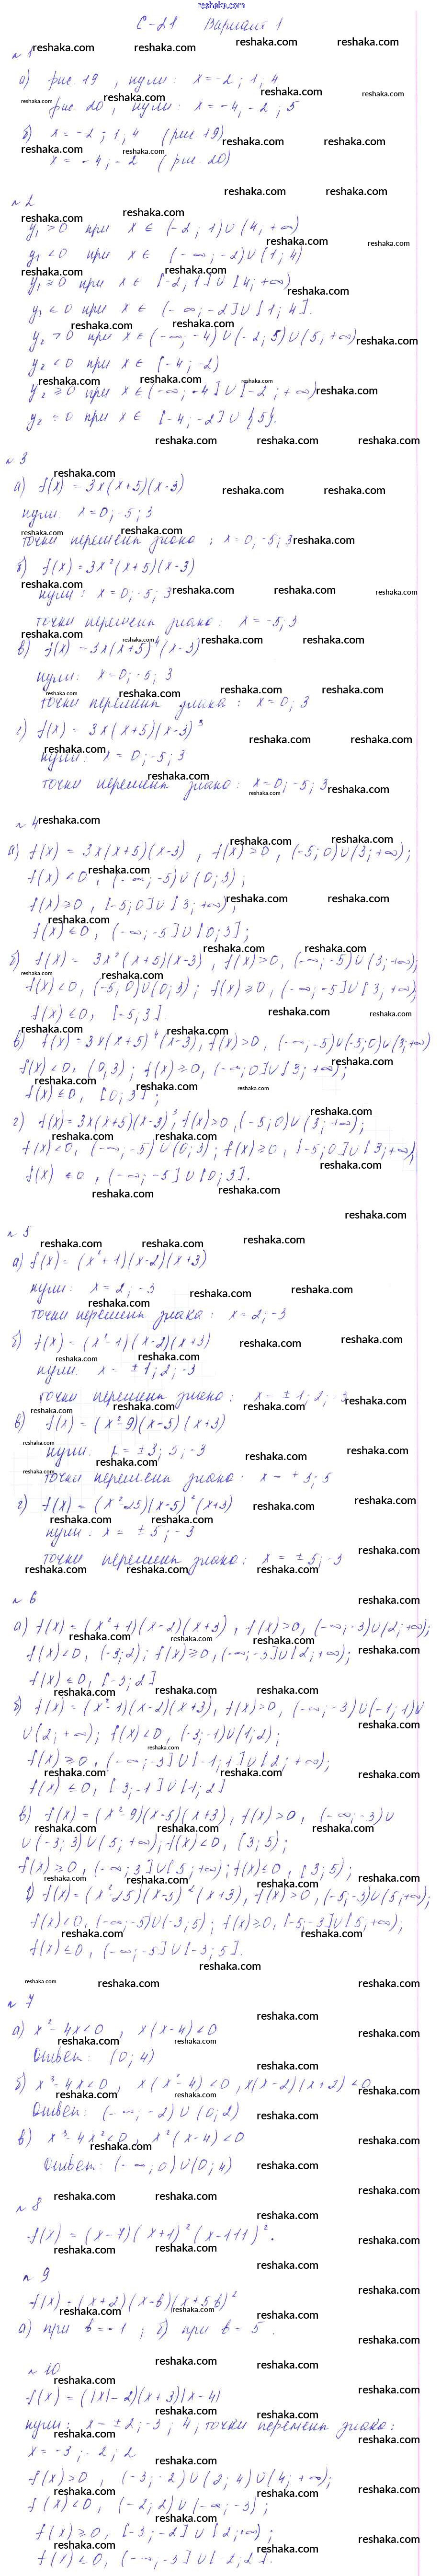 reshaka.com
С-21 Вариант 1
№ 1
а) рис. 19, нули: x=-2; 1, 4
рис. 20, нули: x=-4,-2; 5
б) x=-2; 1, 4 (рис. 19)
x=-4;-2 (рис. 20)
№ 2
y₁>0 при x∈(-2; 1)∪(4; +∞)
y₁<0 при x∈(-∞; -2)∪(1; 4)
y₁≥0 при x∈[-2; 1]∪[4; +∞)
y₁<0 при x∈(-∞; -2]∪[1; 4].
y₂>0 при x∈(-∞; -4)∪(-2; 5)∪(5; +∞)
y₂<0 при x∈[-4; -2)
y₂≥0 при x∈(-∞; -4]∪[-2; +∞)
y₂≤0 при x∈[-4; -2]∪{5}.
№ 3
а) f(x)=3x(x+5)(x-3)
нули: x=0; -5; 3
точки перемены знака: x=0; -5; 3
б) f(x)=3x²(x+5)(x-3)
нули: x=0; -5; 3
точки перемены знака: x=-5; 3
в) f(x)=3x(x+5)⁴(x-3)
нули: x=0; -5; 3
точки перемены знака: x=0; 3
г) f(x)=3x(x+5)(x-3)³
нули: x=0; -5; 3
точки перемены знака: x=0; -5; 3
№ 4
а) f(x)=3x(x+5)(x-3), f(x)>0, (-5; 0)∪(3; +∞);
f(x)<0, (-∞; -5)∪(0; 3);
f(x)≥0, [-5; 0]∪[3; +∞);
f(x)≤0, (-∞; -5]∪[0; 3];
б) f(x)=3x²(x+5)(x-3), f(x)>0, (-∞; -5)∪(3; +∞);
f(x)<0, (-5; 0)∪(0; 3); f(x)≥0, (-∞; -5]∪[3; +∞),
f(x)≤0, [-5; 3].
в) f(x)=3x(x+5)⁴(x-3), f(x)>0, (-∞; -5)∪(-5; 0)∪(3; +∞)
f(x)<0, (0; 3); f(x)≥0, (-∞; 0]∪[3; +∞);
f(x)≤0, [0; 3];
г) f(x)=3x(x+5)(x-3)³, f(x)>0, (-5; 0)∪(3; +∞);
f(x)<0, (-∞; -5)∪(0; 3); f(x)≥0, [-5; 0]∪[3; +∞),
f(x)≤0, (-∞; -5]∪[0; 3].
№ 5
а) f(x)=(x²+1)(x-2)(x+3)
нули: x=2; -3
точки перемены знака: x=2; -3
б) f(x)=(x²-1)(x-2)(x+3)
нули: x=±1; 2; -3
точки перемены знака: x=±1; 2; -3
в) f(x)=(x²-9)(x-5)(x+3)
нули: x=±3; 5; -3
точки перемены знака: x=+3; 5
г) f(x)=(x²-25)(x-5)²(x+3)
нули: x=±5; -3
точки перемены знака: x=±5; -3
№ 6
а) f(x)=(x²+1)(x-2)(x+3), f(x)>0, (-∞; -3)∪(2; +∞);
f(x)<0, (-3; 2); f(x)≥0, (-∞; -3]∪[2; +∞);
f(x)≤0, [-3; 2]
б) f(x)=(x²-1)(x-2)(x+3), f(x)>0, (-∞; -3)∪(-1; 1)∪
∪(2; +∞); f(x)<0, (-3; -1)∪(1; 2);
f(x)≥0, (-∞; -3]∪[-1; 1]∪[2; +∞);
f(x)≤0, [-3; -1]∪[1; 2]
в) f(x)=(x²-9)(x-5)(x+3), f(x)>0, (-∞; -3)∪
∪(-3; 3)∪(5; +∞); f(x)<0, (3; 5);
f(x)≥0, (-∞; 3]∪[5; +∞); f(x)≤0, [3; 5];
г) f(x)=(x²-25)(x-5)²(x+3), f(x)>0, (-5; -3)∪(5; +∞);
f(x)<0, (-∞; -5)∪(-3; 5); f(x)≥0, [-5; -3]∪[5; +∞),
f(x)≤0, (-∞; -5]∪[-3; 5].
№ 7
а) x²-4x<0, x(x-4)<0
Ответ: (0; 4)
б) x³-4x<0, x(x²-4)<0, x(x-2)(x+2)<0
Ответ: (-∞; -2)∪(0; 2)
в) x³-4x²<0, x²(x-4)<0
Ответ: (-∞; 0)∪(0; 4)
№ 8
f(x)=(x-7)(x+1)²(x-111)².
№ 9
f(x)=(x+2)(x-b)(x+5b)²
а) при b=-1; б) при b=5.
№ 10
f(x)=(|x|-2)(x+3)|x-4|
нули: x=±2; -3; 4; точки перемены знака:
x=-3; -2; 2
f(x)>0, (-3; -2)∪(2; 4)∪(4; +∞);
f(x)<0, (-2; 2)∪(-∞; -3);
f(x)≥0, [-3; -2]∪[2; +∞);
f(x)≤0, (-∞; -3]∪[-2; 2].